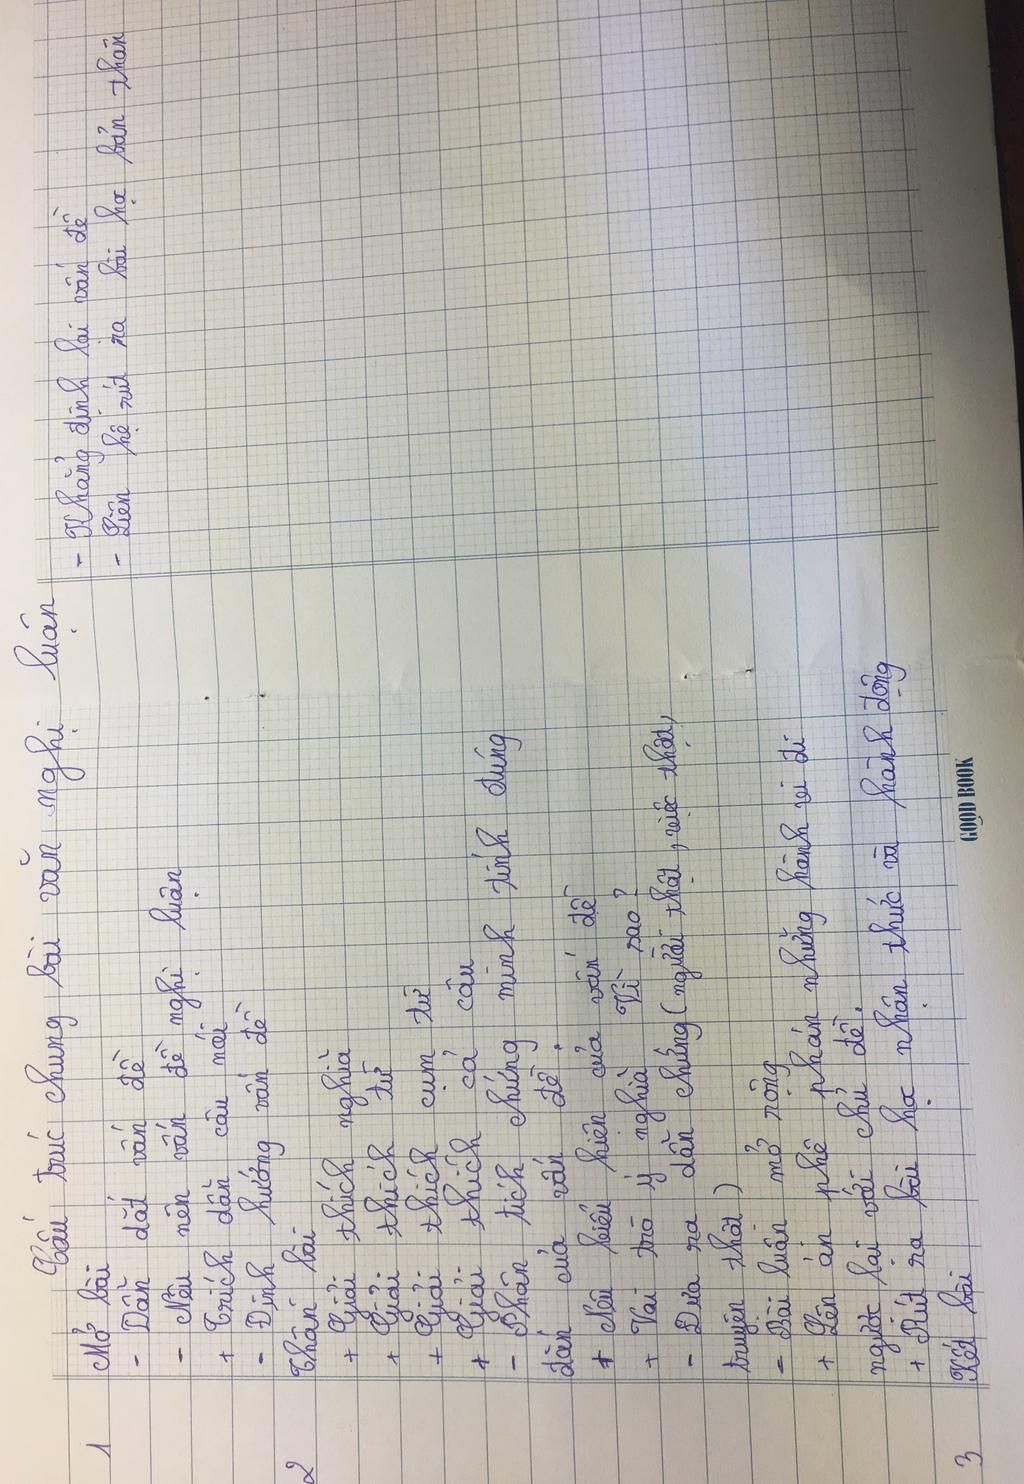 Cấu trúc chung bài văn nghị luận
1 Mở bài
- Dẫn dắt vấn đề
- Nêu nên vấn đề nghị luận
+ Trích dẫn câu nói
- Định hướng vấn đề
2 Thân bài
+ Giải thích nghĩa
+ Giải thích từ
+ Giải thích cụm từ
+ Giải thích cả câu
- Phân tích chứng minh tính đúng
đắn của vấn đề.
+ Nêu biểu hiện của vấn đề
+ Vai trò ý nghĩa Vì sao?
- Đưa ra dẫn chứng (người thật, việc thật,
truyện thật)
- Bài luận mở rộng
+ Lên án phê phán những hành vi đi
ngược lại với chủ đề.
+ Rút ra bài học nhận thức và hành động
3 Kết bài
- Khẳng định lại vấn đề
- Liên hệ rút ra bài học bản thân
GOOD BOOK